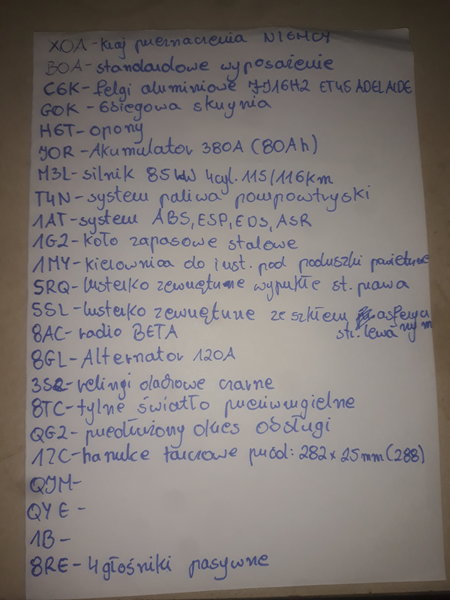 X0A - kraj przeznaczenia NIEMCY
B0A - standardowe wyposażenie
C6K - felgi aluminiowe 7J16H2 ET45 ADELAIDE
G0K - 6biegowa skrzynia
H6T - opony
J0R - Akumulator 380A (80Ah)
M3L - silnik 85kW 4cyl. 115/116km
T4N - system paliwa pompowtryski
1AT - system ABS, ESP, EDS, ASR
1G2 - Koło zapasowe stalowe
1MY - kierownica do inst. pod poduszki powietrzne
5RQ - lusterko zewnętrzne wypukłe st. prawa
5SL - lusterko zewnętrzne ze szkłem asferycznym
str. lewa
8AC - radio BETA
8GL - Alternator 120A
3S2 - relingi dachowe czarne
8TC - tylne światło przeciwmgielne
QG2 - przedłużony okres obsługi
1ZC - hamulce tarczowe przód: 282 x 25mm (288)
QJM -
QYE -
1B -
8RE - 4 głośniki pasywne